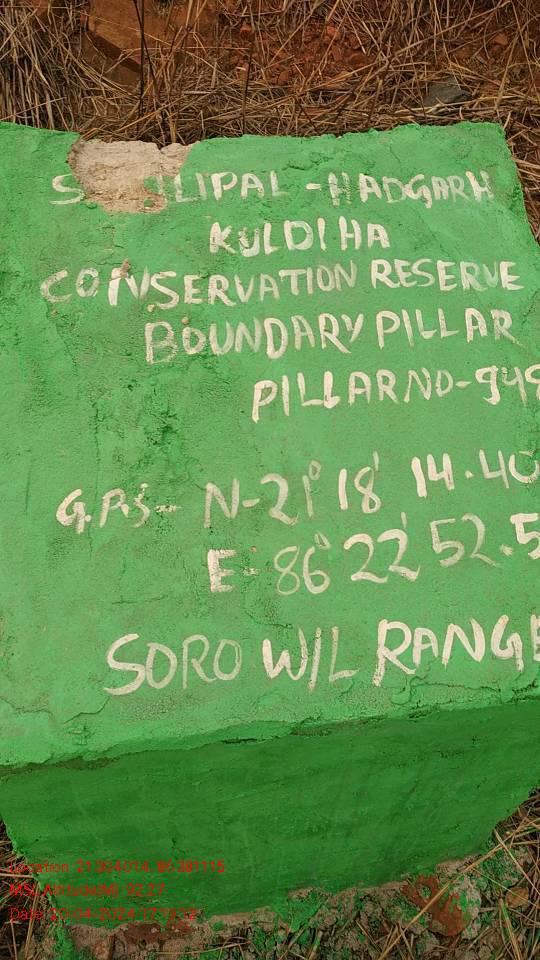 S LIPAL - HADGARH
KULDIHA
CONSERVATION RESERVE
BOUNDARY PILLAR
PILLAR NO - 949
G.P.S- N-21° 18' 14.40
E-86° 22' 52.5
SORO W/L RANGE
Location: 21.304014, 86.381115
MSL Altitude(M): 92.27
Date: 20-04-2024 17:19:12